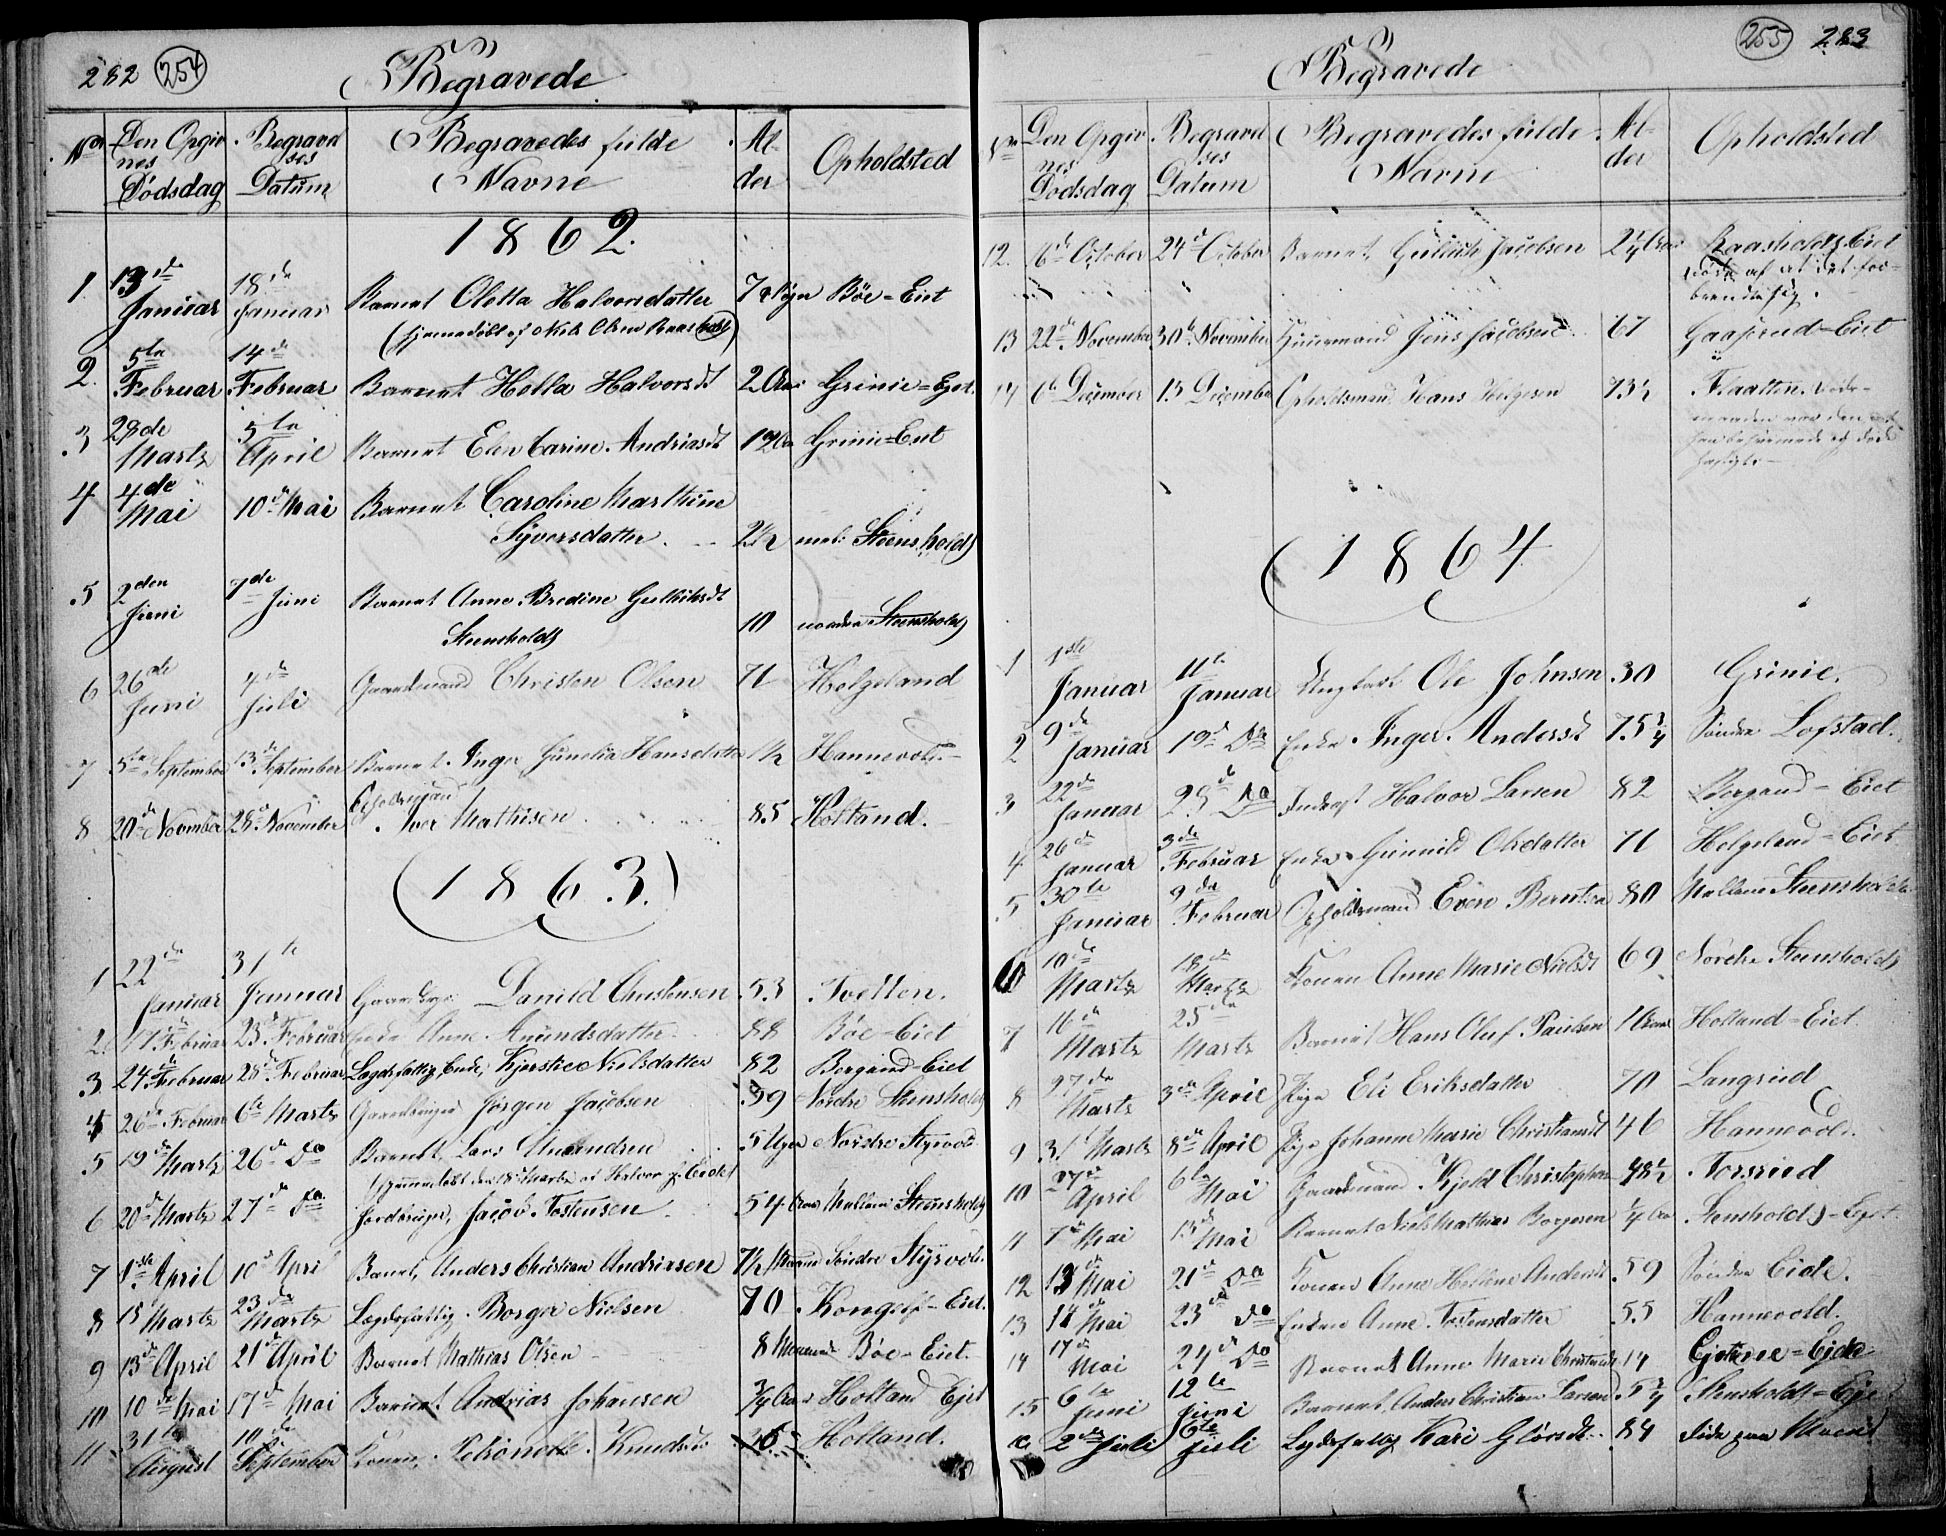 282 254
Begravede
No Den Opgivnes Dødsdag Begravelses Datum Begravedes fulde Navne Alder Opholdsted
1862.
1 13de Januar 18de Januar Barnet Oletta Halvorsdatter 7 Døgn Böe-Eiet
(hjemmedöbt af Niels Olsen
2. 5te Februar 14de Februar Barnet Hella Halvorsdt 2 Aar Grinie-Ejet.
3 28de Martz 5te April Barnet Elen Carine Andriasdt 12 Grinie-Eiet
4 4de Mai 10de Mai Barnet Caroline Marthine
Syversdatter. 2½ mel: Steensholdt
5 2den Juni 7de Juni Barnet Anne Bredine Gulliksdt
Steensholdt 10 nordre Steensholdt
6 26de Juni 4de Juli Gaardmand Christen Olsen 71 Helgeland
7 5te September 13de September Barnet Inger Hansdatter 1½ Hannevold.
Opholdsmand
8. 20de November 28de November Iver Mathisen 85 Holtand.
(1863.)
1 22de Januar 31te Januar Daniel Christensen 53 Tvetten.
2. 17de Februar 23de Februar Enke Anne Amundsdatter 88 Böe-Eiet
3. 24de Februar 28de Februar Lægdsfattig, Enke, Kjerstie Nielsdatter 82 Bergand-Eiet
4 26de Februar 6te Martz Gaardbruger Jörgen Jacobsen 39 Nordre Steensholdt
5 19de Martz 26de Do Barnet Lars Amundsen 5 Uger Nordre Styrvold
(hjemmedöbt den 18de Martz af Halvor
6 20de Martz 27de Do Jordbruger, Jacob Tostensen 54 Aar Mellem Steensholdt
7 1ste April 10de April Barnet, Anders Christian Andriasen 7½ Maaned Söndre Styrvold.
8 15 Martz 23de Martz Lægdsfattig. Borger Nielsen 70 Eiet.
9 13de April 21de April Barnet Mathias Olsen 8 Maaned Böe-Eiet.
10 10de Mai 17de Mai Barnet Andrias Johansen ¾ Aar Holtand Ejet
11 31te August 10de September Konen, Knudsdt. Holtand.
255 283
Begravede
No Den Opgivnes Dödsdag Begravelses Datum Begravedes fulde Navne Alder Opholdsted
12. 6te October 24de October Barnet Gullich Jacobsen 2¼ Aar Raasholdt Eiet
döde af at det for-
brendte sig.
13 22de November 30te November Huusmand Jens Jacobsen 67 Gaaserud-Eiet
14 6te December 15 December Opholdsmand Hans Helgesen 73½ Flaatten.
(1864)
1 1ste Januar 11te Januar Ungkarl Ole Johnsen 30 Grinie.
2 9de Januar 19de Do Enke Inger Andersdt 75¾ Söndre Lofstad.
3 22de Januar 29de Do Inderst Halvor Larsen 82 Bergand-Eiet
4 26de Januar 3de Februar Enke Gunnild Olsdatter 71 Helgeland-Eiet
5 30te Januar 9de Februar Opholdsmand Even Berntsen 80 Mellem Steensholdt
6 10de Martz 18de Martz Konen Anne Marie Nielsdt 69 Nordre Steensholdt
7 16de Martz 25de Martz Barnet Hans Oluf Paulsen 1 Aar Holtand-Eiet
8 27de Martz 3de April Pige Eli Eriksdatter 70 Langrud
9 31 Martz 8de April Pige Johanne Marie Christiansdt 46 Hannevold.
10 27de April 6te Mai Gaardmand Kjeld Christophersen 48½ Forsrud
11 7de Mai 15de Mai Barnet Niels Mathias Borgersen ¼ Aar Steensholdt-Ejet
12 13de Mai 21de Do Konen Anne Hellene Andersdt 59 Söndre Eide.
13 14de Mai 23de Do Enken Anne Tostensdatter 55 Hannevold.
14 17de Mai 24de Do Barnet Anne Marie Christiansdt 14 Ejde
15 6te Juni 12te Juni Barnet, Anders Christian Larsen 5¾ Steensholdt-Ejet
16 2den Juli 6te Juli Lægdsfattig Kari Glörsdt. 84